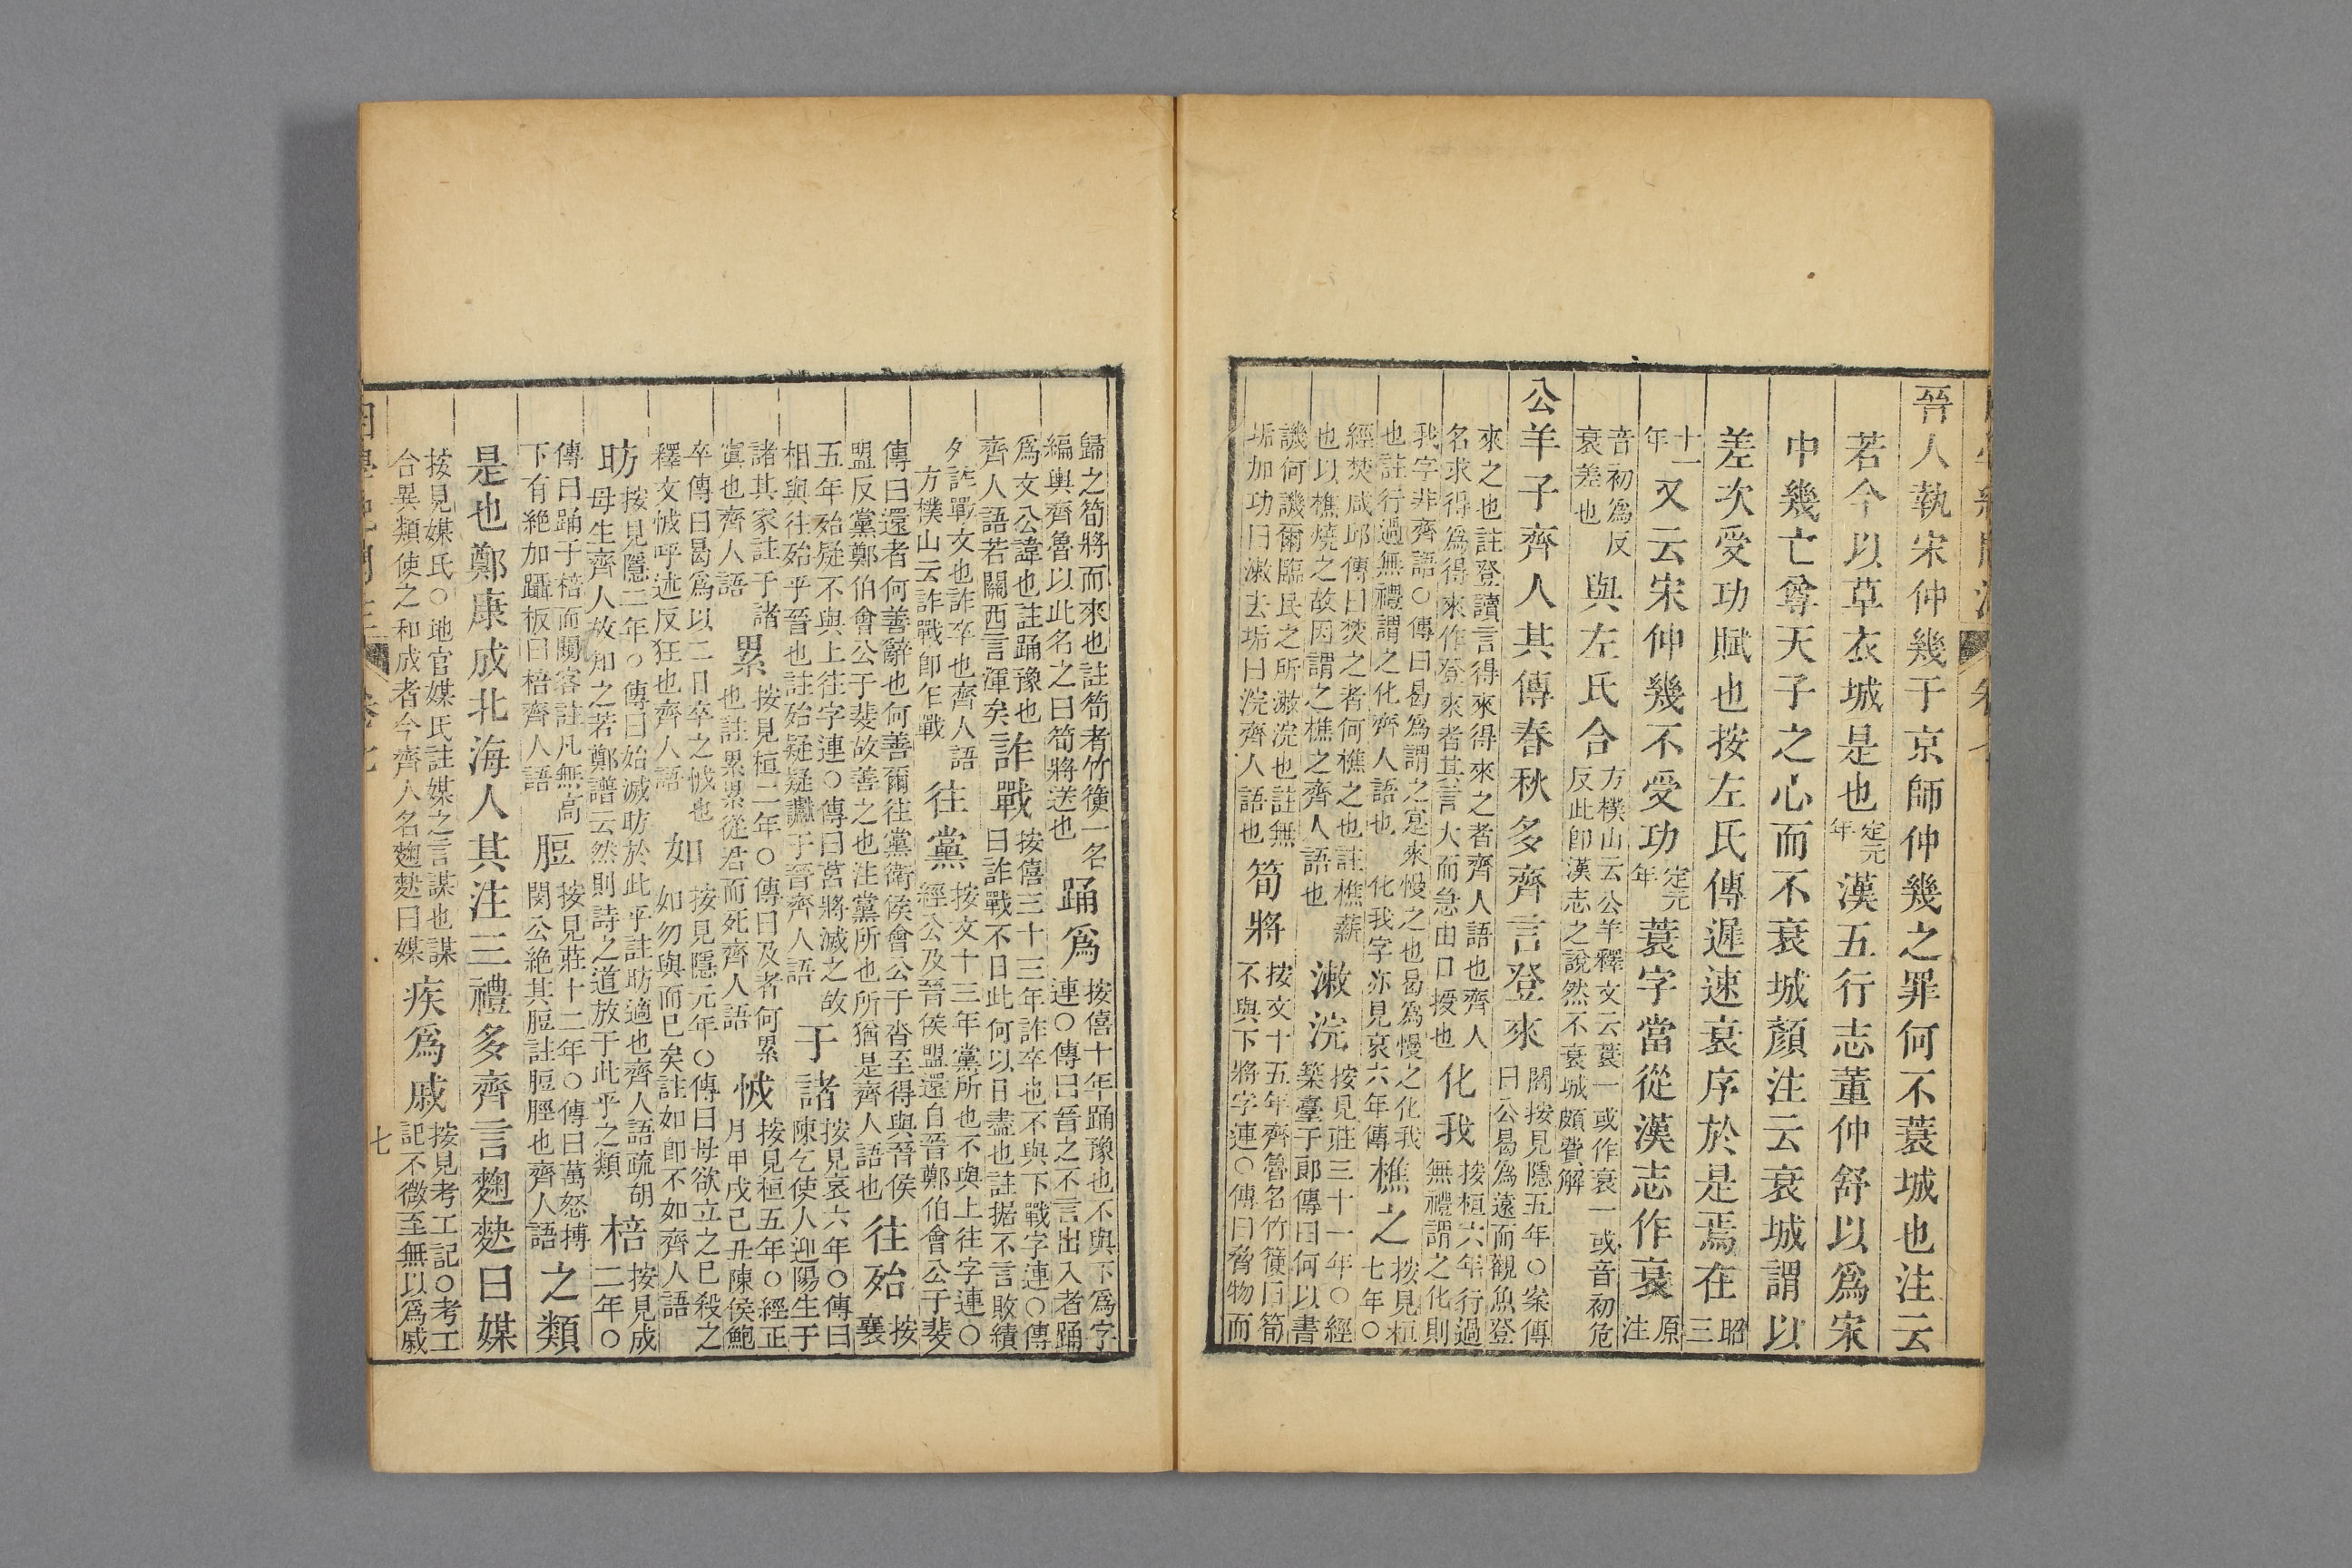 晉人執宋仲幾于京師仲幾之罪何不蓑城也注云
若今以草衣城是也定元年漢五行志董仲舒以爲宋
中幾亡尊天子之心而不衰城顏注云衰城謂以
差次受功賦也按左氏傳遲速衰序於是焉在昭三
十一年又云宋仲幾不受功定元年蓑字當從漢志作衰原注
音初爲反衰差也與左氏合方樸山云公羊釋文云蓑一或作衰一或音初危反此卽漢志之說然不衰城頗費解
公羊子齊人其傳春秋多齊言登來閻按見隱五年○案傳曰公曷爲遠而觀魚登
來之也註登讀言得來得來之者齊人語也齊人名求得爲得來作登來者其言大而急由口授也化我按桓六年行過無禮謂之化則
我字非齊語○傳曰曷爲謂之寔來慢之也曷爲慢之化我也註行過無禮謂之化齊人語也　化我字亦見哀六年傳樵之按見桓七年○
經焚咸邱傳曰焚之者何樵之也註樵薪也以樵燒之故因謂之樵之齊人語也漱浣按見莊三十一年○經築臺于郎傳曰何以書
譏何譏爾臨民之所漱浣也註無垢加功曰漱去垢曰浣齊人語也筍將按文十五年齊魯名竹箯曰筍不與下將字連○傳曰脅物而
歸之筍將而來也註筍者竹箯一名編輿齊魯以此名之曰筍將送也踊爲按僖十年踊豫也不與下爲字連○傳曰晉之不言出入者踊
爲文公諱也註踊豫也齊人語若關西言渾矣詐戰按僖三十三年詐卒也不與下戰字連○傳曰詐戰不日此何以日盡也註据不言敗績
外詐戰文也詐卒也齊人語方樸山云詐戰卽乍戰往黨按文十三年黨所也不與上往字連○經公及晉侯盟還自晉鄭伯會公于斐
傳曰還者何善辭也何善爾往黨衛侯會公于沓至得與晉侯盟反黨鄭伯會公于斐故善之也注黨所也所猶是齊人語也往殆按襄
五年殆疑不與上往字連○傳曰莒將滅之故相與往殆乎晉也註殆疑疑讞于晉齊人語于諸按見哀六年○傳曰陳乞使人迎陽生于
諸其家註于諸寘也齊人語累按見桓二年○傳曰及者何累也註累累從君而死齊人語怴按見桓五年○經正月甲戌己丑陳侯鮑
卒傳曰曷爲以二日卒之怴也釋文怴呼述反狂也齊人語如按見隱元年○傳曰母欲立之已殺之如勿與而已矣註如卽不如齊人語
昉按見隱二年○傳曰始滅昉於此乎註昉適也齊人語疏胡母生齊人故知之若鄭譜云然則詩之道放于此乎之類棓按見成二年○
傳曰踊于棓而闚客註凡無高下有絕加躡板曰棓齊人語脰按見莊十二年○傳曰萬怒搏閔公絕其脰註脰脛也齊人語之類
是也鄭康成北海人其注三禮多齊言麴麩曰媒
按見媒氏○地官媒氏註媒之言謀也謀合異類使之和成者今齊人名麴麩曰媒疾爲戚按見考工記○考工記不微至無以爲戚
七